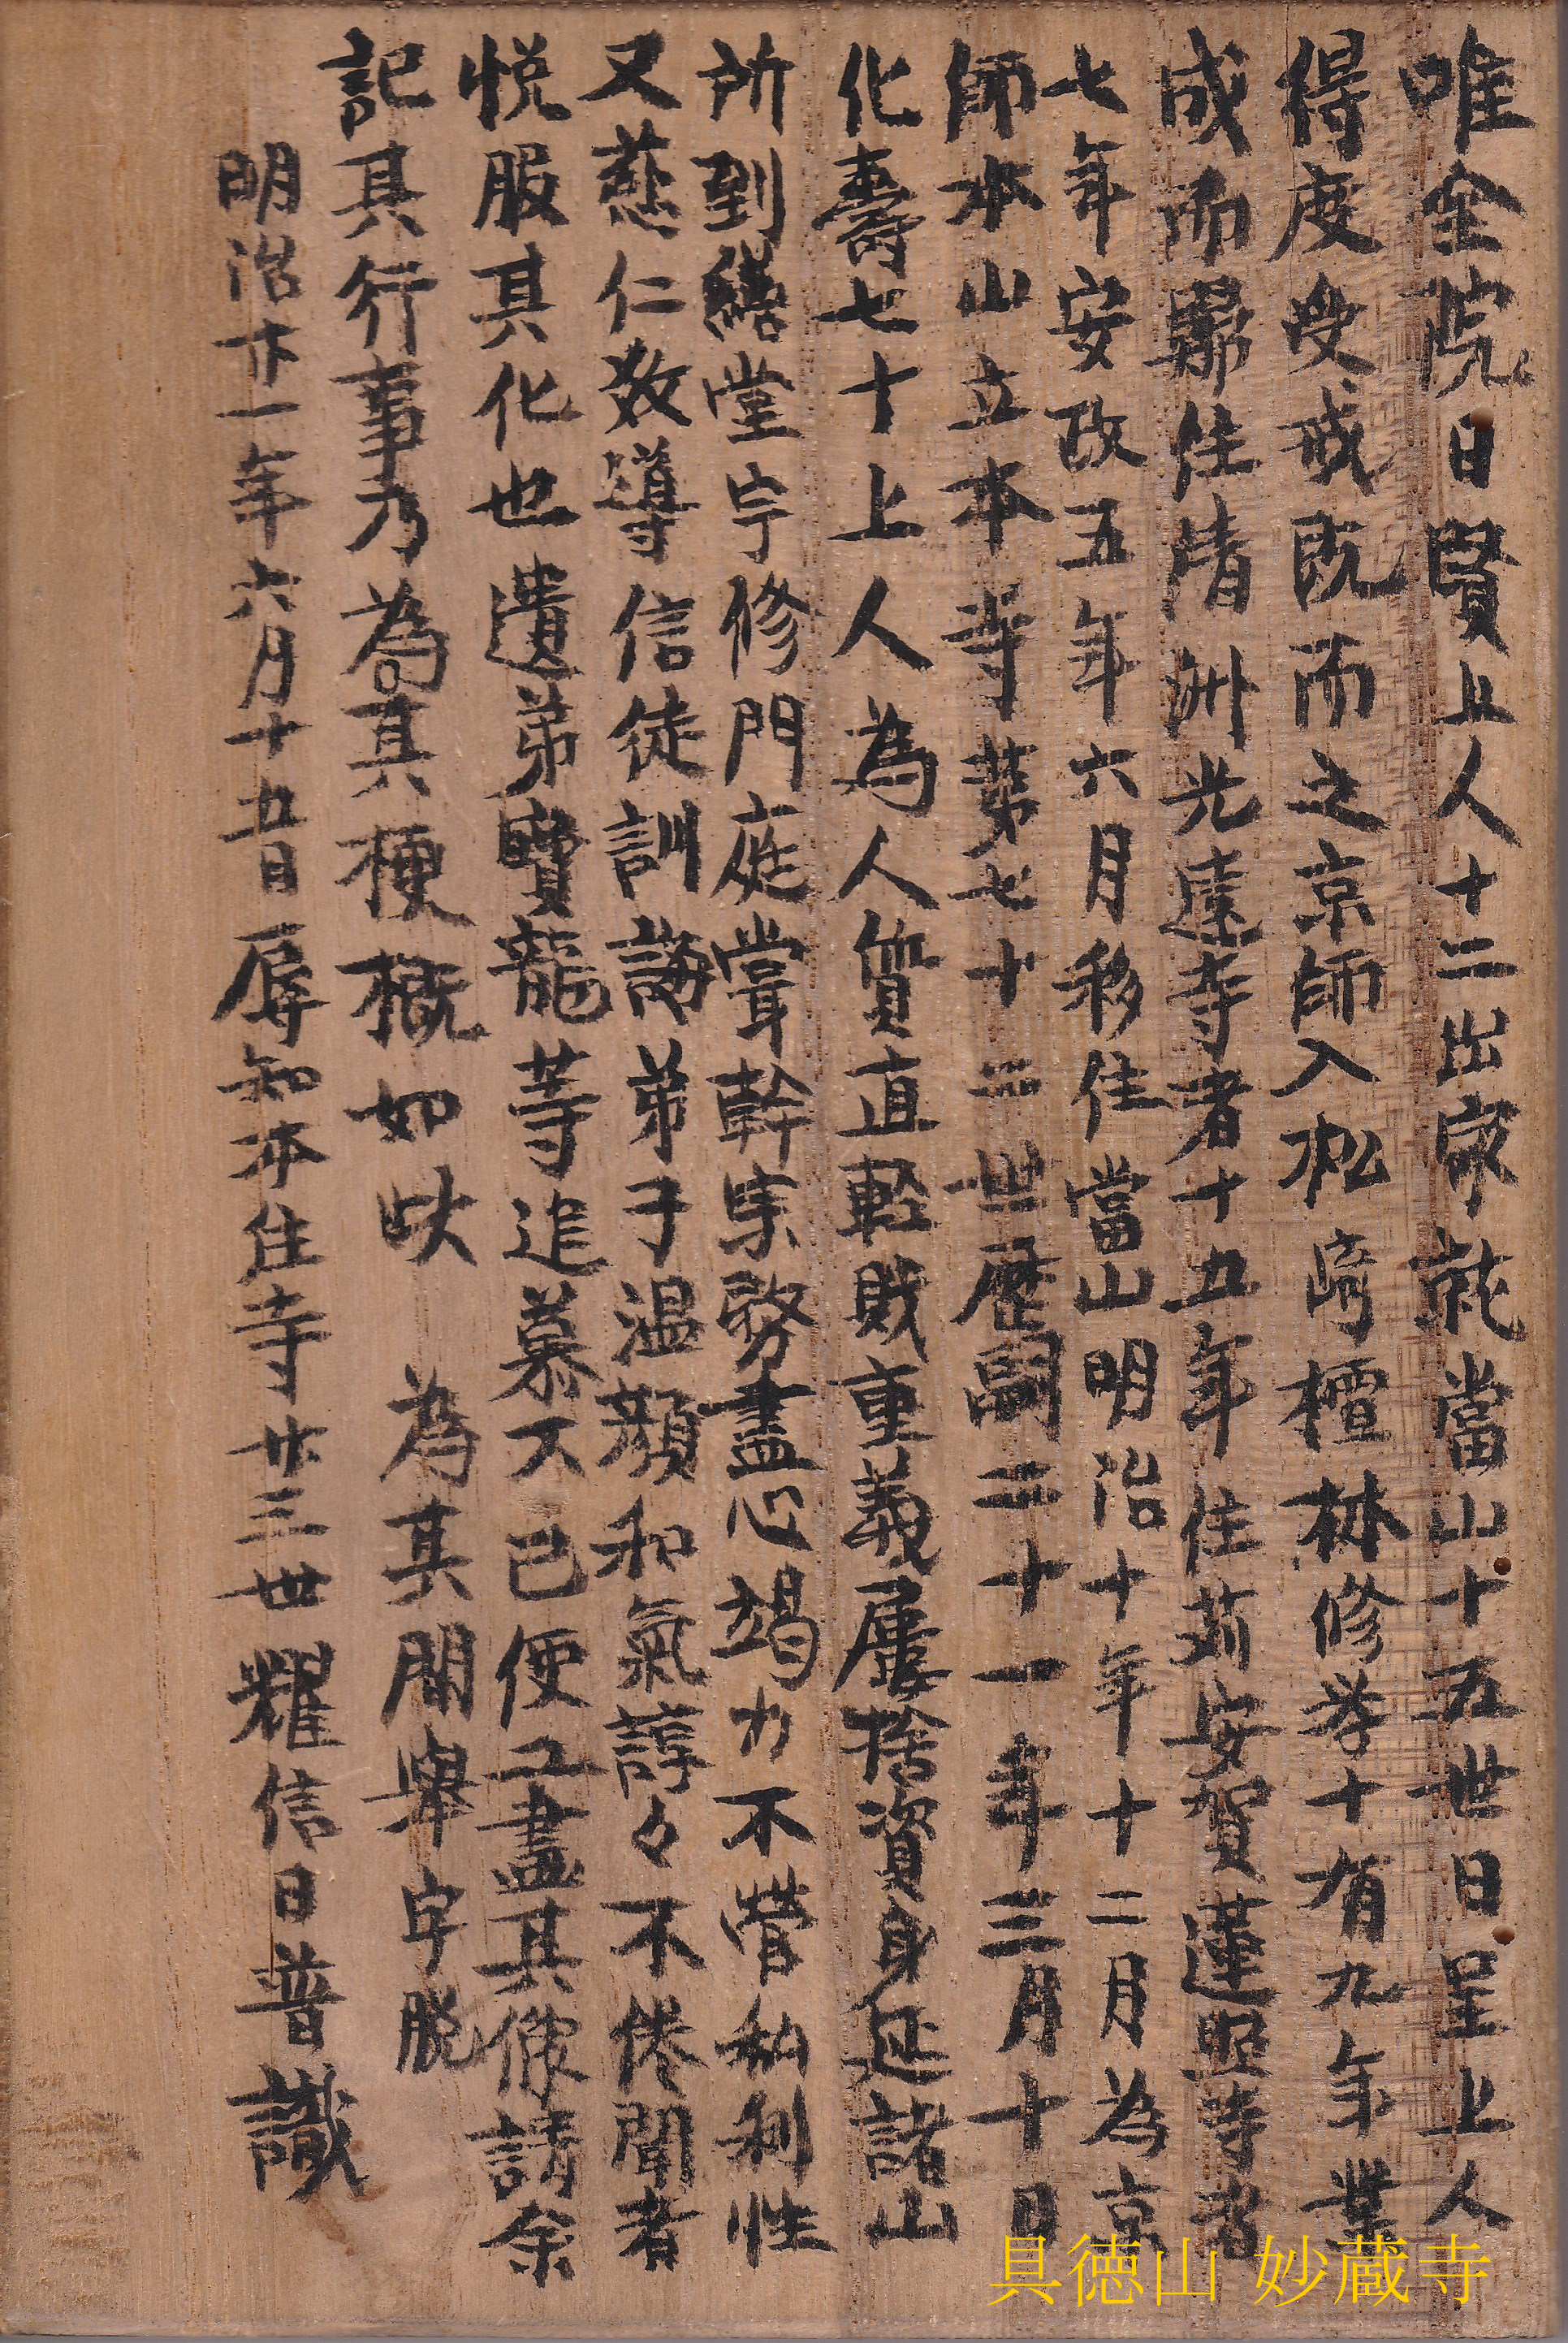 唯全院日賢上人十二出家就當山十五世日呈上人
得度受戒既而之京師入松﨑檀林修挙十有九年業
成而歸住清洲光遠寺者十五年住苅安賀蓮照寺者
七年安政五年六月移住當山明治十年十二月為京
師本山立本寺第七十二世歴嗣二十一年三月十日
化壽七十上人為人質直軽財重義屢捨資身延諸山
所到繕堂宇修門庭嘗幹宗務盡心竭力不營私利性
又慈仁教導信徒訓誨弟子温顔和氣諄々不倦聞者
悦服其化也遺弟寶龍等追慕不已便工畫其像請余
記其行事乃為其梗概如此 為其間舉字脱
明治廿一年六月十五日辱知本住寺廿三世耀信日普識
具徳山 妙蔵寺